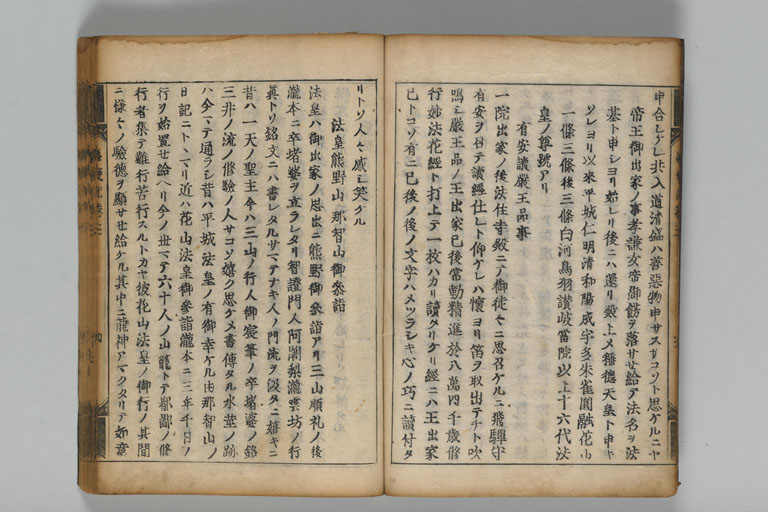 申合シケレ共入道清盛ハ善惡物申サスサコソト思ケルニヤ
帝王御出家ノ事孝謙女帝御餝ヲ落サセ給テ法名ヲ法
基ト申シヨリ始レリ後ニハ還リ殿上メ稱德天皇ト申キ
ソレヨリ以來平城仁明清和陽成宇多朱雀圓融花山
一條三條後三條白河鳥羽讃岐當院以上十六代法
皇ノ尊號アリ
有安讀嚴王品事
一院出家ノ後法住寺殿ニテ御徒然ニ思召ケルニ飛驒守
有安ヲ召テ讀經仕レト仰ケレハ懷ヨリ笛ヲ取出テチト吹
鳴シ嚴王品ノ王出家已後常勤精進於八萬四千歳修
行妙法花經ト打上テ一枚ハカリ讀タリケリ經ニハ王出家
已トコソ有ニ已後ノ後ノ文字ハメツラシキ心ノ巧ニ讀付タ
リトソ人々感シ笑ケル
法皇熊野山那智山御參詣
法皇ハ御出家ノ思出ニ熊野御參詣アリ三山順礼ノ後
瀧本ニ卒堵婆ヲ立ラレタリ智證門人阿闍梨瀧雲坊ノ行
眞トソ銘文ニハ書レタルサマテナキ人ノ門流ヲ汲タニ嬉キニ
昔ハ一天ノ聖主今ハ三山ノ行人御宸筆ノ卒堵婆ノ銘
三井ノ流ノ修驗ノ人サコソ嬉ク思ケメ書傳タル水莖ノ跡
ハ今マテ通ラシ昔ハ平城法皇ノ有御幸ケル由那智山ノ
日記ニトヽマリ近ハ花山法皇御參詣瀧本ニ三年千日ノ
行ヲ始置セ給ヘリ今ノ世マテ六十人ノ山籠トテ都鄙ノ修
行者集テ難行苦行スルトカヤ彼花山法皇ノ御行ノ其間
ニ樣々ノ驗德ヲ顯サセ給ケル其中ニ龍神アマクタリテ如意